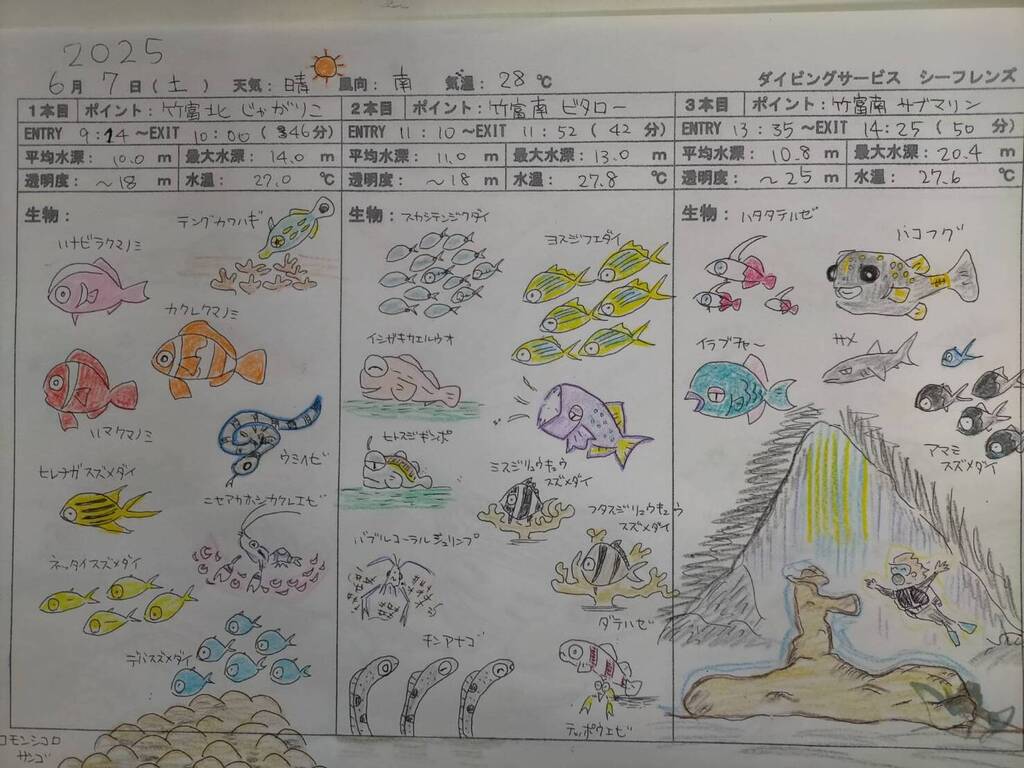 2025
6月 7日(土) 天気: 晴 風向: 南 気温: 28℃
ダイビングサービス シーフレンズ
1本目 ポイント: 竹富北 じゃがりこ
ENTRY 9:14 ~EXIT 10:00 (46分)
平均水深: 10.0 m 最大水深: 14.0 m
透明度: ~18 m 水温: 27.0 ℃
生物:
テングカワハギ
ハナビラクマノミ
カクレクマノミ
ハマクマノミ
ウミヘビ
ヒレナガスズメダイ
ニセアカホシカクレエビ
ネッタイスズメダイ
デバスズメダイ
コモンシコロ
サンゴ
2本目 ポイント: 竹富南 ビタロー
ENTRY 11:10 ~EXIT 11:52 (42 分)
平均水深: 11.0 m 最大水深: 13.0 m
透明度: ~18 m 水温: 27.8 ℃
生物:
スカシテンジクダイ
ヨスジフエダイ
イシガキカエルウオ
ヒトスジギンポ
ミスジリュウキュウ
スズメダイ
フタスジリュウキュウ
スズメダイ
バブルコーラルシュリンプ
チンアナゴ
ダテハゼ
テッポウエビ
3本目 ポイント: 竹富南 サブマリン
ENTRY 13:35 ~EXIT 14:25 (50 分)
平均水深: 10.8 m 最大水深: 20.4 m
透明度: ~25 m 水温: 27.6 ℃
生物:
ハタタテハゼ
バコフグ
イラブチャー
サメ
アマミ
スズメダイ